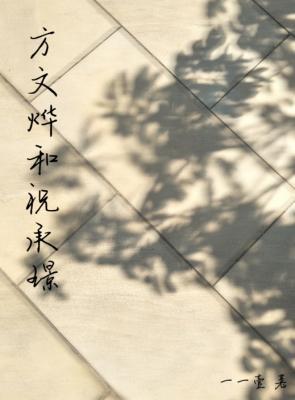 方文烨和祝承璟
一一壶 著